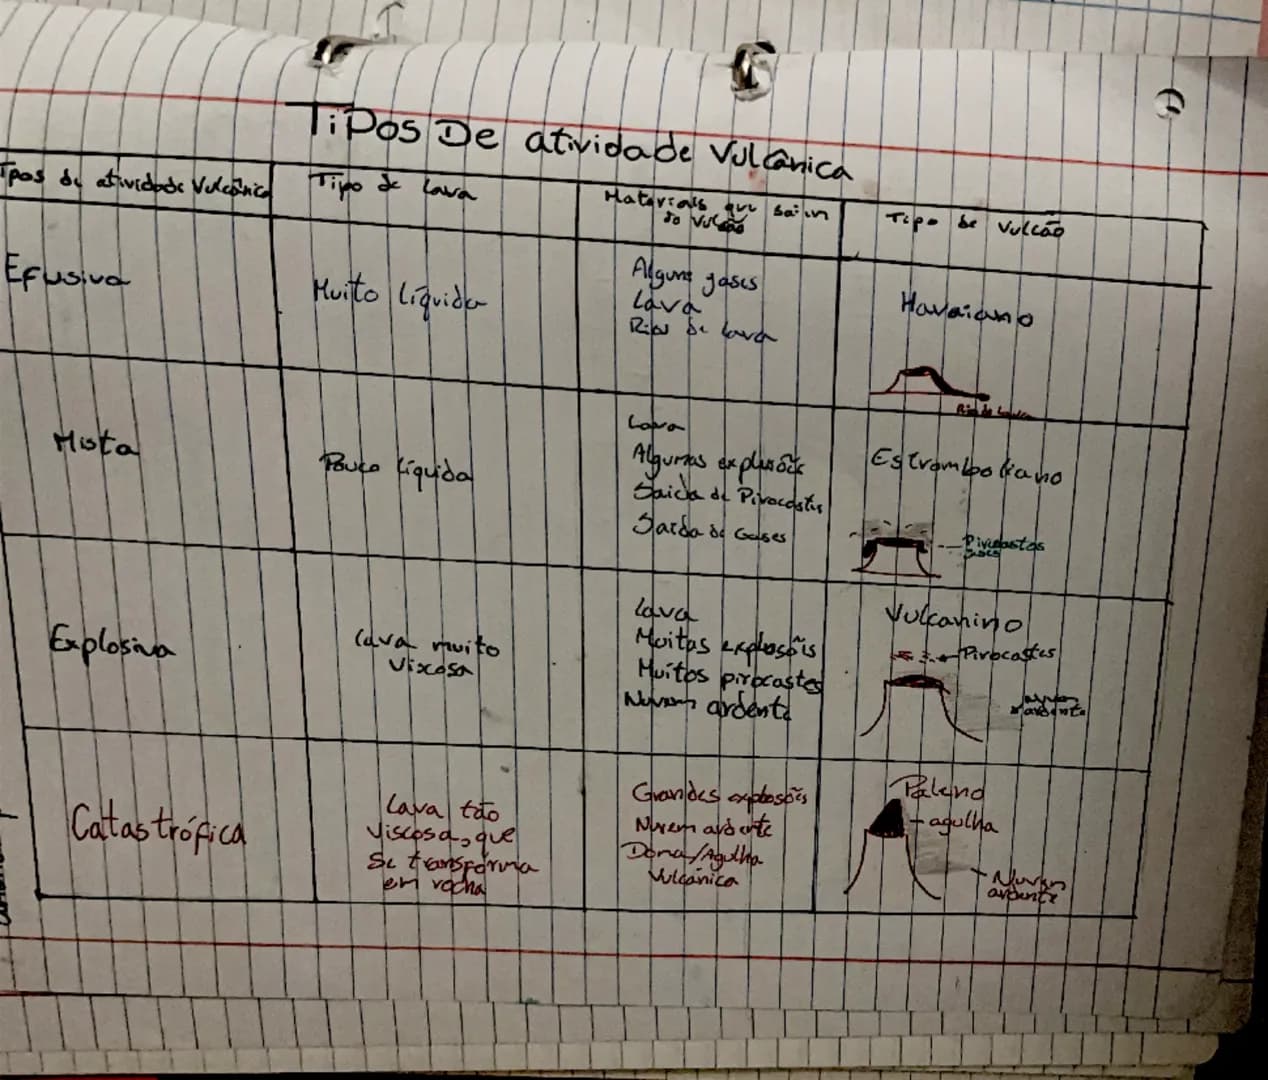 Tipos De atividade Vulcânica
Tipos de atividade Vulcânica
Tipo de Lava
Materiais que saiem
do Vulcão
Tipo de Vulcão
Efusiva
Muito líquida
Alguns gases
Lava
Rios de Lava
Havaiano
Rio de Lava
Mista
Pouco líquida
Lava
Algumas explosões
Saida de Pirocastes
Saída de Gases
Estromboliano
Pirocastos
gases
Explosiva
Lava muito
Viscosa
Lava
Muitas explosões
Muitos pirocastes
Nuvem ardente
Vulcanino
Pirocastes
Nuvem
ardente
Catastrófica
Lava tão
Viscosa, que
Se transforma
em rocha
Grandes explosões
Nuvem ardente
Doma/Agulha
Vulcânica
Paleno
agulha
Nuvem
ardente